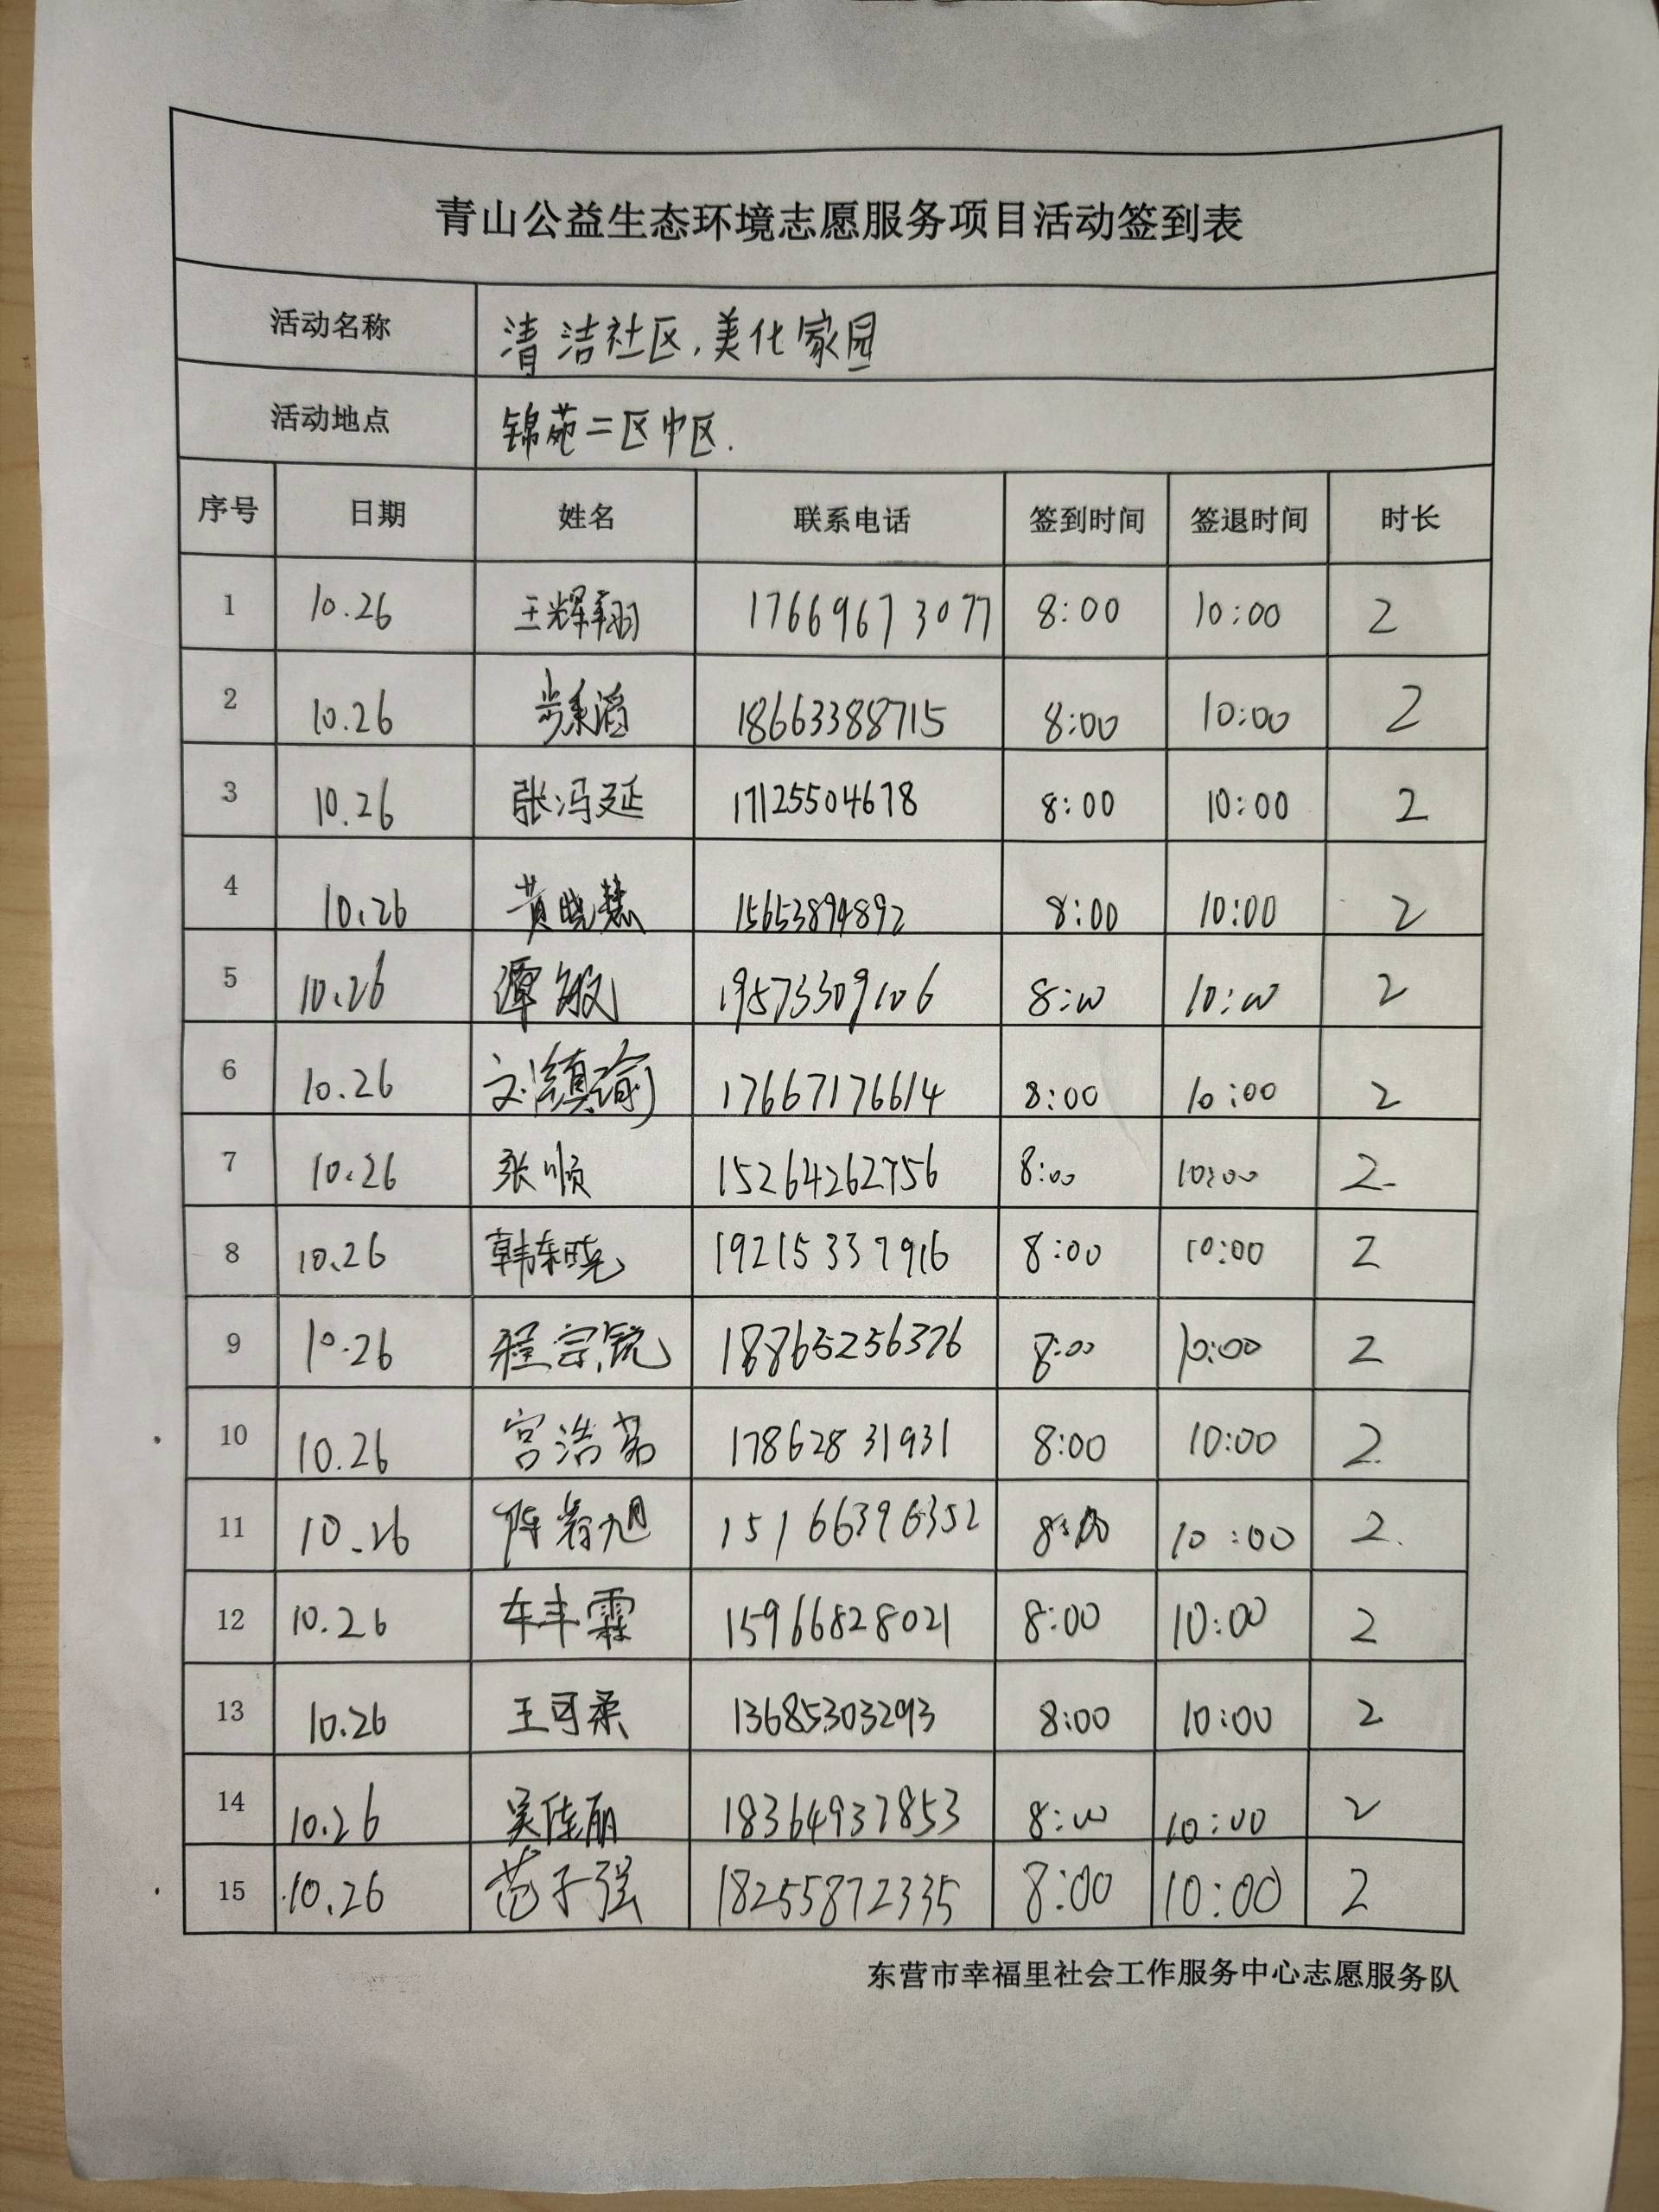 青山公益生态环境志愿服务项目活动签到表
活动名称 清洁社区,美化家园
活动地点 锦苑二区中区.
序号 日期 姓名 联系电话 签到时间 签退时间 时长
1 10.26 王辉翔 17669673077 8:00 10:00 2
2 10.26 步秉滔 18663388715 8:00 10:00 2
3 10.26 张冯延 17125504678 8:00 10:00 2
4 10.26 黄晓慧 15653894892 8:00 10:00 2
5 10.26 谭敏 19573309106 8:00 10:00 2
6 10.26 17667176614 8:00 10:00 2
7 10.26 张顺 15264262756 8:00 10:00 2
8 10.26 韩东晓 19215337916 8:00 10:00 2
9 10.26 程宗锐 18765256376 8:00 10:00 2
10 10.26 宫浩 17862831931 8:00 10:00 2
11 10.26 15166396352 8:00 10:00 2
12 10.26 车丰霖 15966828021 8:00 10:00 2
13 10.26 王可柔 13685303293 8:00 10:00 2
14 10.26 吴佳丽 18364937853 8:00 10:00 2
15 10.26 范子强 18255872335 8:00 10:00 2
东营市幸福里社会工作服务中心志愿服务队